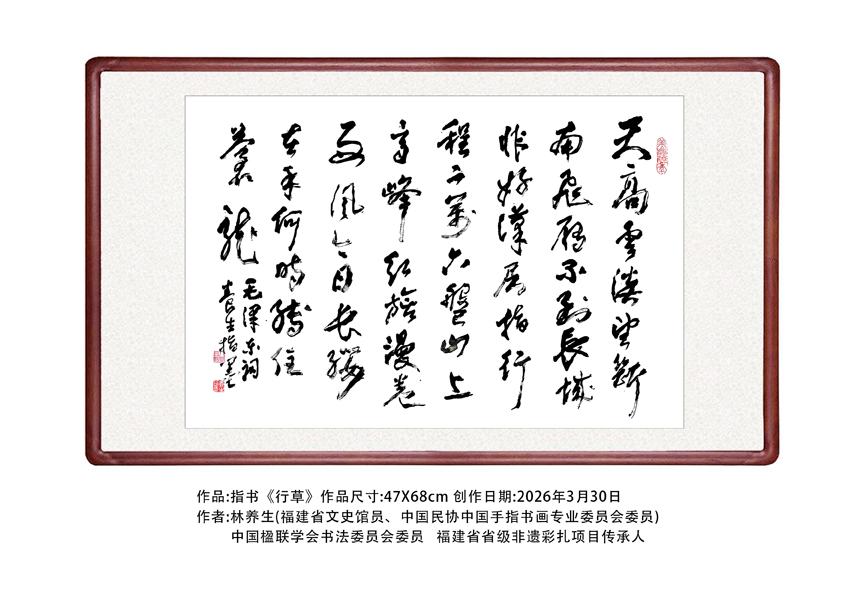 天高雲淡望斷
南飛雁不到長城
非好漢屈指行
程二萬六盤山上
高峰紅旗漫卷
西風今日長纓
在手何時縛住
蒼龍
毛澤東詞
養生指墨
作品:指书《行草》作品尺寸:47X68cm 创作日期:2026年3月30日
作者:林养生(福建省文史馆员、中国民协中国手指书画专业委员会委员)
中国楹联学会书法委员会委员 福建省省级非遗彩扎项目传承人